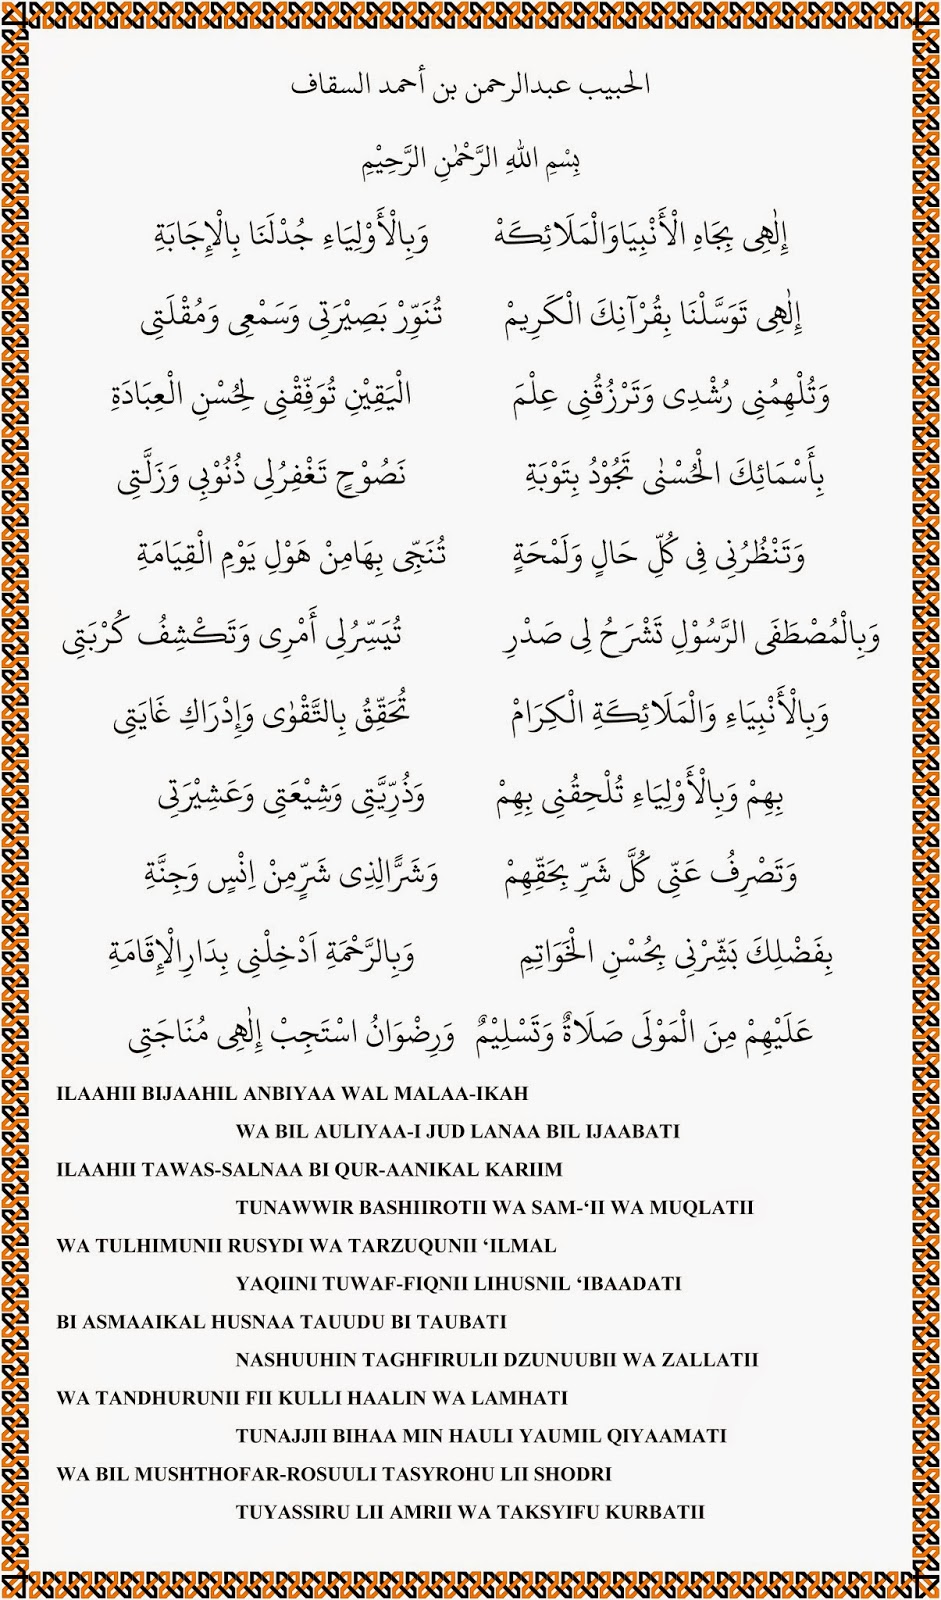 الحبيب عبدالرحمن بن أحمد السقاف
بِسْمِ اللهِ الرَّحْمٰنِ الرَّحِيْمِ
إِلٰهِى بِجَاهِ الْأَنْبِيَاوَالْمَلَائِكَهْ وَبِالْأَوْلِيَاءِ جُدْلَنَا بِالْإِجَابَةِ
إِلٰهِى تَوَسَّلْنَا بِقُرْآنِكَ الْكَرِيمْ تُنَوِّرْ بَصِيْرَتِى وَسَمْعِى وَمُقْلَتِى
وَتُلْهِمُنِى رُشْدِى وَتَرْزُقُنِى عِلْمَ الْيَقِيْنِ تُوَفِّقْنِى لِحُسْنِ الْعِبَادَةِ
بِأَسْمَائِكَ الْحُسْنٰى تَجُوْدُ بِتَوْبَةِ نَصُوْحٍ تَغْفِرُلِى ذُنُوْبِى وَزَلَّتِى
وَتَنْظُرُنِى فِى كُلِّ حَالٍ وَلَمْحَةٍ تُنَجِّى بِهَامِنْ هَوْلِ يَوْمِ الْقِيَامَةِ
وَبِالْمُصْطَفَى الرَّسُوْلِ تَشْرَحُ لِى صَدْرِ تُيَسِّرُلِى أَمْرِى وَتَكْشِفُ كُرْبَتِى
وَبِالْأَنْبِيَاءِ وَالْمَلَائِكَةِ الْكِرَامْ تُحَقِّقُ بِالتَّقْوٰى وَإِدْرَاكِ غَايَتِى
بِهِمْ وَبِالْأَوْلِيَاءِ تُلْحِقُنِى بِهِمْ وَذُرِّيَّتِى وَشِيْعَتِى وَعَشِيْرَتِى
وَتَصْرِفُ عَنِّى كُلَّ شَرِّ بِحَقِّهِمْ وَشَرًّالِذِى شَرٍّمِنْ اِنْسٍ وَجِنَّةِ
بِفَضْلِكَ بَشِّرْنِى بِحُسْنِ الْخَوَاتِمِ وَبِالرَّحْمَةِ اَدْخِلْنِى بِدَارِالْإِقَامَةِ
عَلَيْهِمْ مِنَ الْمَوْلَى صَلَاةٌ وَتَسْلِيْمٌ وَرِضْوَانُ اسْتَجِبْ إِلٰهِى مُنَاجَتِى
ILAAHII BIJAAHIL ANBIYAA WAL MALAA-IKAH
WA BIL AULIYAA-I JUD LANAA BIL IJAABATI
ILAAHII TAWAS-SALNAA BI QUR-AANIKAL KARIIM
TUNAWWIR BASHIIROTII WA SAM-‘II WA MUQLATII
WA TULHIMUNII RUSYDI WA TARZUQUNII ‘ILMAL
YAQIINI TUWAF-FIQNII LIHUSNIL ‘IBAADATI
BI ASMAAIKAL HUSNAA TAUUDU BI TAUBATI
NASHUUHIN TAGHFIRULII DZUNUUBII WA ZALLATII
WA TANDHURUNII FII KULLI HAALIN WA LAMHATI
TUNAJJII BIHAA MIN HAULI YAUMIL QIYAAMATI
WA BIL MUSHTHOFAR-ROSUULI TASYROHU LII SHODRI
TUYASSIRU LII AMRII WA TAKSYIFU KURBATII